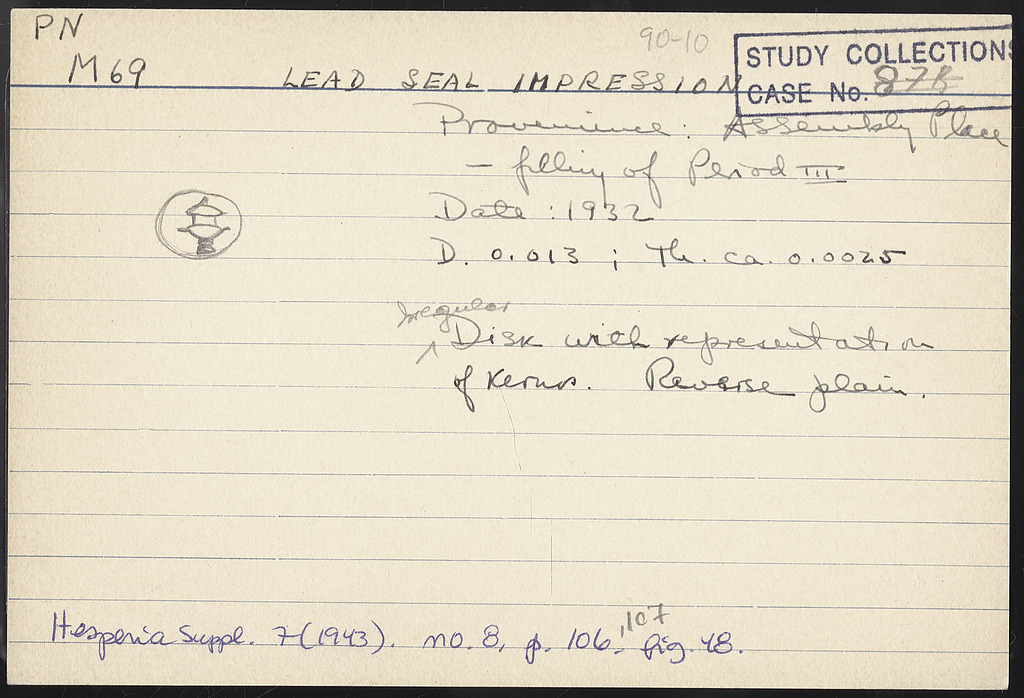 PN
90-10
STUDY COLLECTIONS
M69
LEAD SEAL IMPRESSION
CASE No. 87B
Provenience: Assembly Place
– filling of Period III
Date: 1932
D. 0.013 ; Th. ca. 0.0025
Irregular
Disk with representation
of Kernos. Reverse plain.
Hesperia Suppl. 7 (1943). no. 8, p. 106, 107 fig. 48.